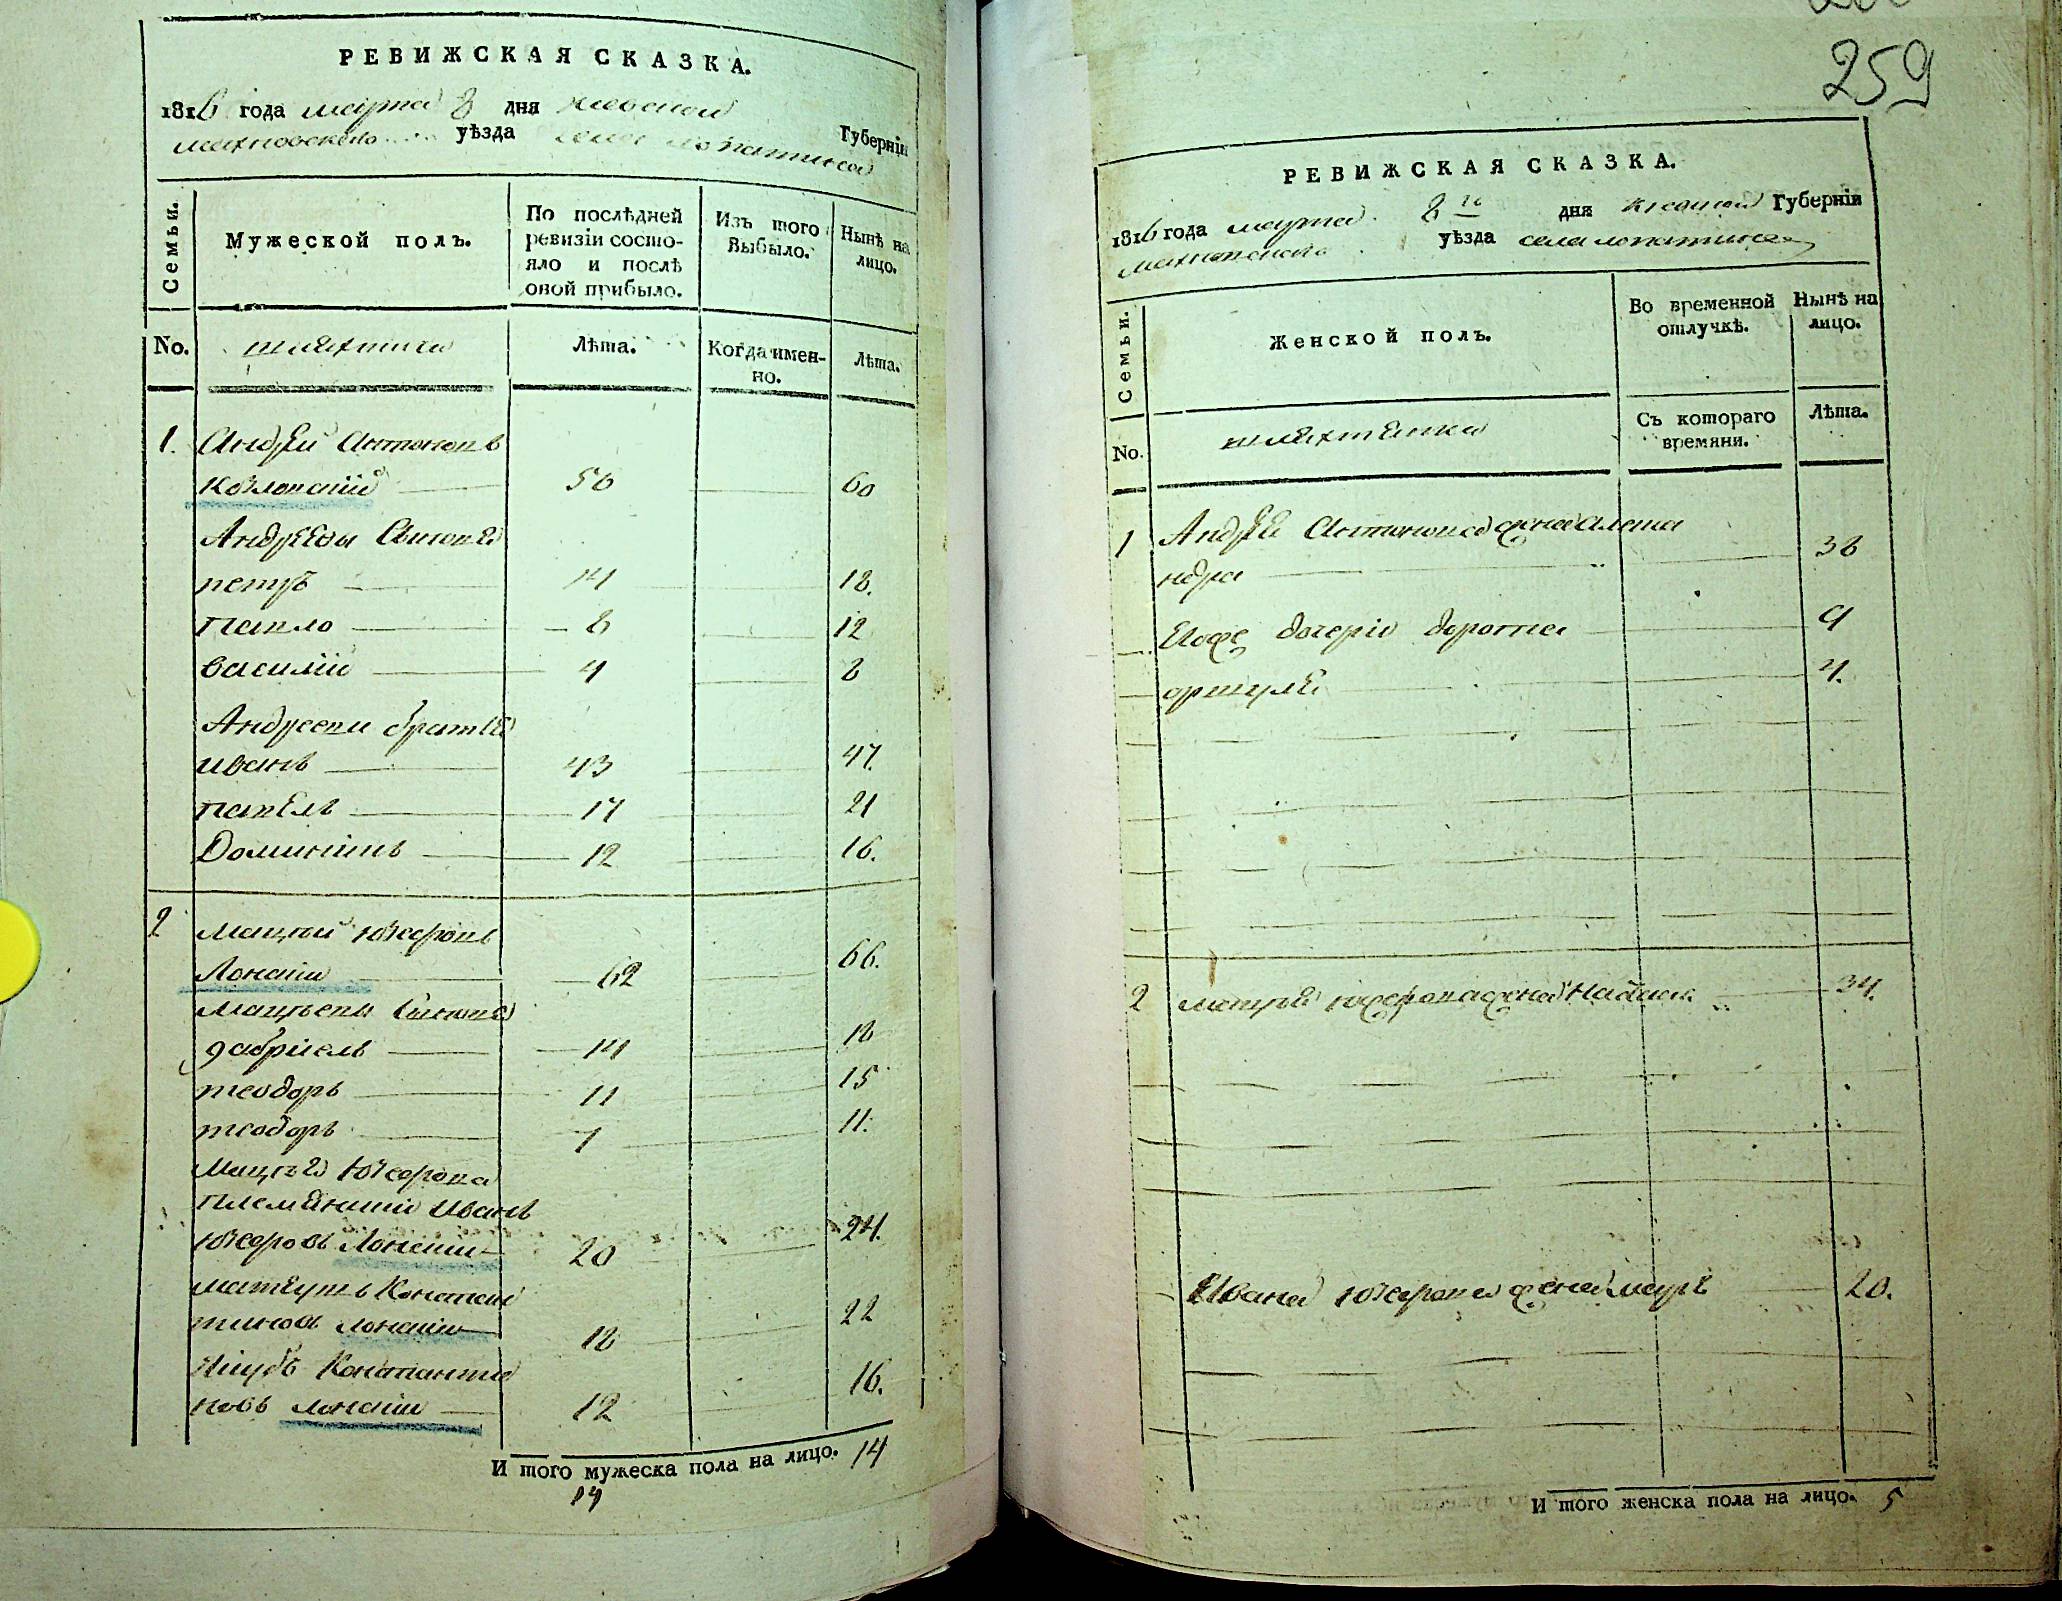 259
РЕВИЖСКАЯ СКАЗКА.
1816 года марта 8 дня киевской Губерніи
махновского уѣзда села лопатинса
Семьи.
Мужеской полъ.
По послѣдней
ревизіи состо-
яло и послѣ
оной прибыло.
Изъ того
Выбыло.
Нынѣ на
лицо.
No.
шляхтичи
Лѣта.
Когда имен-
но.
Лѣта.
1. Андрей Антоновъ
Козловскій 56 60
Андреевы Сыновя
петръ 14 18.
Павло 8 12
василій 4 8
Андреевы братья
иванъ 43 47.
павелъ 17 21
Доминикъ 12 16.
2 мацѣй Юзефовъ
Лонскій 62 66.
Мацѣевы Сыновя
габріель 14 18
теодоръ 11 15
теодоръ 7 11.
Мацѣя Юзефова
племянники Иванъ
Юзефовъ Лонскій 20 24.
матеушъ Констан
тиновъ лонскій 18 22
Якубъ Константи
новъ лонскій 12 16.
И того мужеска пола на лицо. 14
14
РЕВИЖСКАЯ СКАЗКА.
1816 года марта 8 го дня киевской Губерніи
махновского уѣзда села лопатинса
Семьи.
Женской полъ.
Во временной
отлучкѣ.
Нынѣ на
лицо.
No.
шляхтянки
Съ котораго
времяни.
Лѣта.
1 Андрея Антонова жена Алекса
ндра 38
дочери доротея 9
оршуля 4.
2 мацѣя юзефова жена 34.
Ивана юзефова жена 20.
И того женска пола на лицо. 5